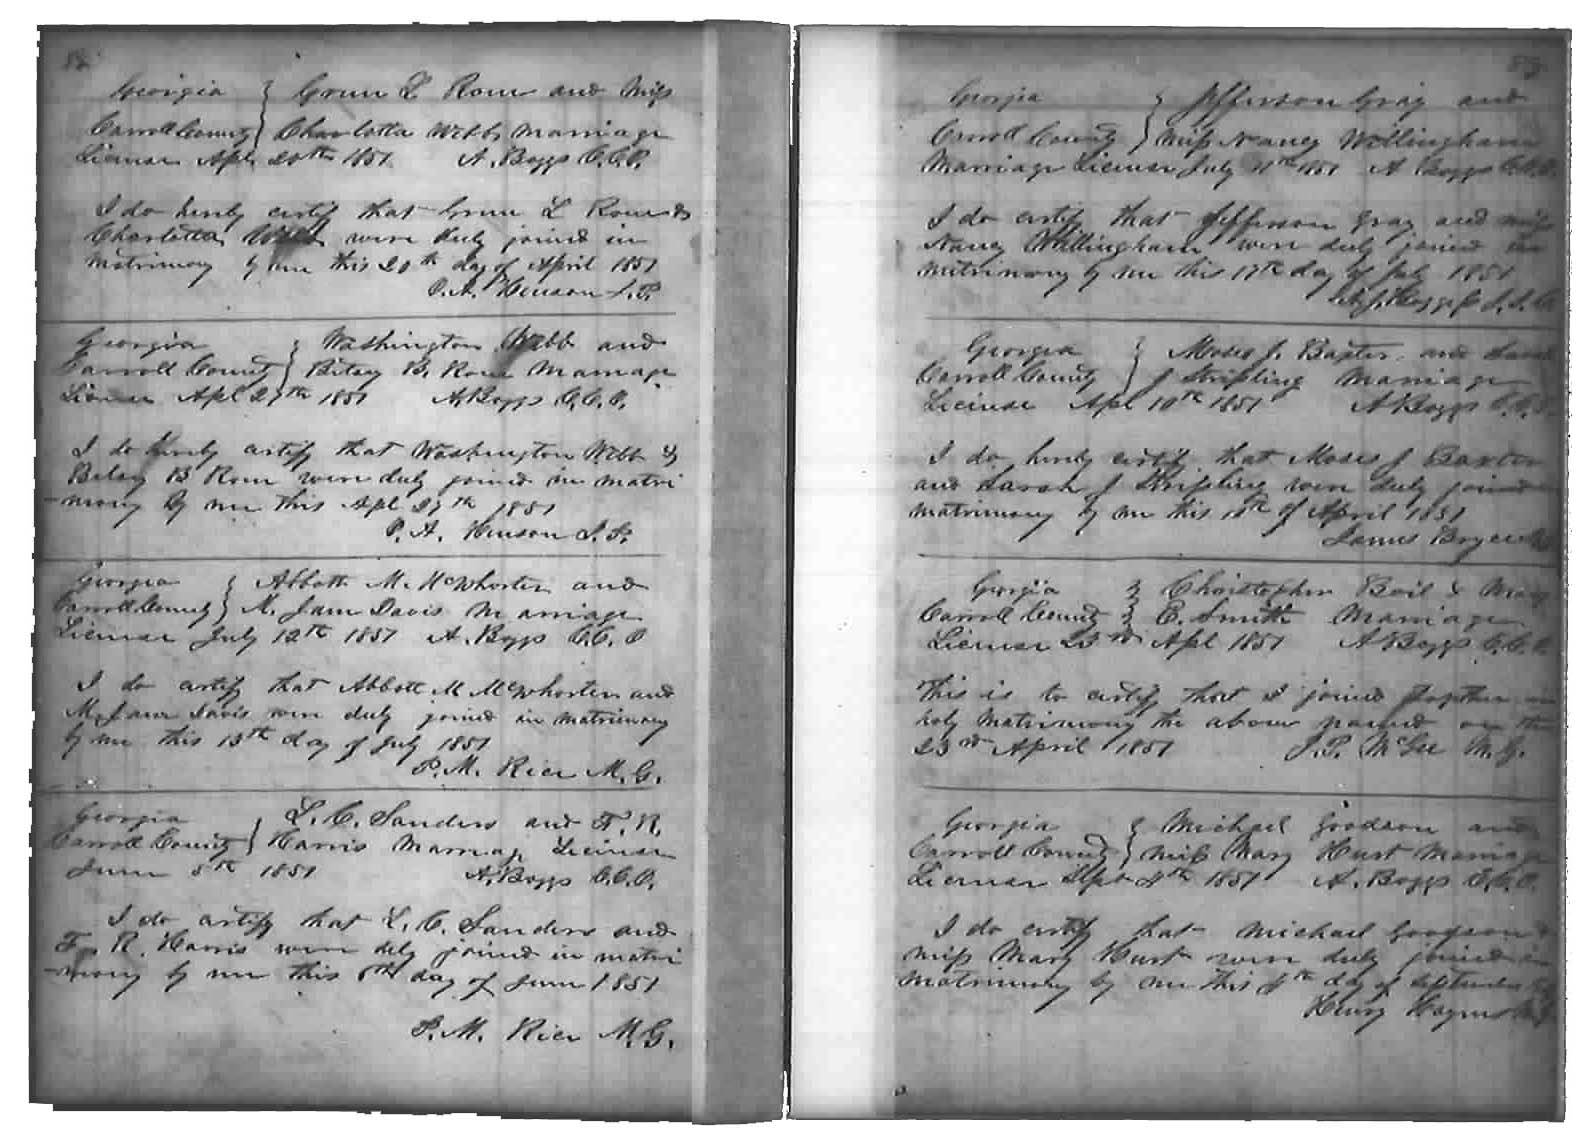 82
Georgia } Green L Rowe and Miss
Carroll County } Charlotta Webb Marriage
License Apl 20th 1851 A. Boggs C.C.O.
I do herely certify that Green L Rowe &
Charlotta Webb were duly joined in
matrimony by me this 20th day of April 1851
P. A. Henson J. P.
Georgia } Washington Webb and
Carroll County } Betsy B. Rowe Marriage
License Apl 27th 1851 A. Boggs C.C.O.
I do herely certify that Washington Webb &
Betsy B Rowe were duly joined in matri
-mony by me this Apl 27th 1851
P. A. Henson J. P.
Georgia } Abbott M. McWhorter and
Carroll County } M. Jane Davis Marriage
License July 12th 1851 A. Boggs C.C.O
I do certify that Abbott M McWhorter and
M. Jane Davis were duly joined in matrimony
by me this 13th day of July 1851
P. M. Rice M. G.
Georgia } L. C. Sanders and F. R.
Carroll County } Harris Marriage License
June 5th 1851 A. Boggs C.C.O.
I do certify that L. C. Sanders and
F. R. Harris were duly joined in matri
-mony by me this 6th day of June 1851
P. M. Rice M. G.
83
Georgia } Jefferson Gray and
Carroll County } Miss Nancy Willingham
Marriage License July 11th 1851 A Boggs C.C.O.
I do certify that Jefferson Gray and Miss
Nancy Willingham were duly joined in
matrimony by me this 17th day of July 1851
Boggs J. I. C
Georgia } Moses J. Baxter and Sarah
Carroll County } J Stripling Marriage
License Apl 10th 1851 A Boggs C.C.O.
I do herely certify that Moses J Baxter
and Sarah J Stripling were duly joined
matrimony by me this of April 1851
James
Georgia } Christopher Bail & Mary
Carroll County } E. Smith Marriage
License 23rd Apl 1851 A Boggs C.C.O.
This is to certify that I joined together in
holy matrimony the above named on the
23rd April 1851 J. P. McGee M. G.
Georgia } Michael Goodson and
Carroll County } Miss Mary Hurt Marriage
License Sept 4th 1851 A. Boggs C.C.O.
I do certify that Michael Goodson &
Miss Mary Hurt were duly joined in
matrimony by me this 4th day of September
Henry